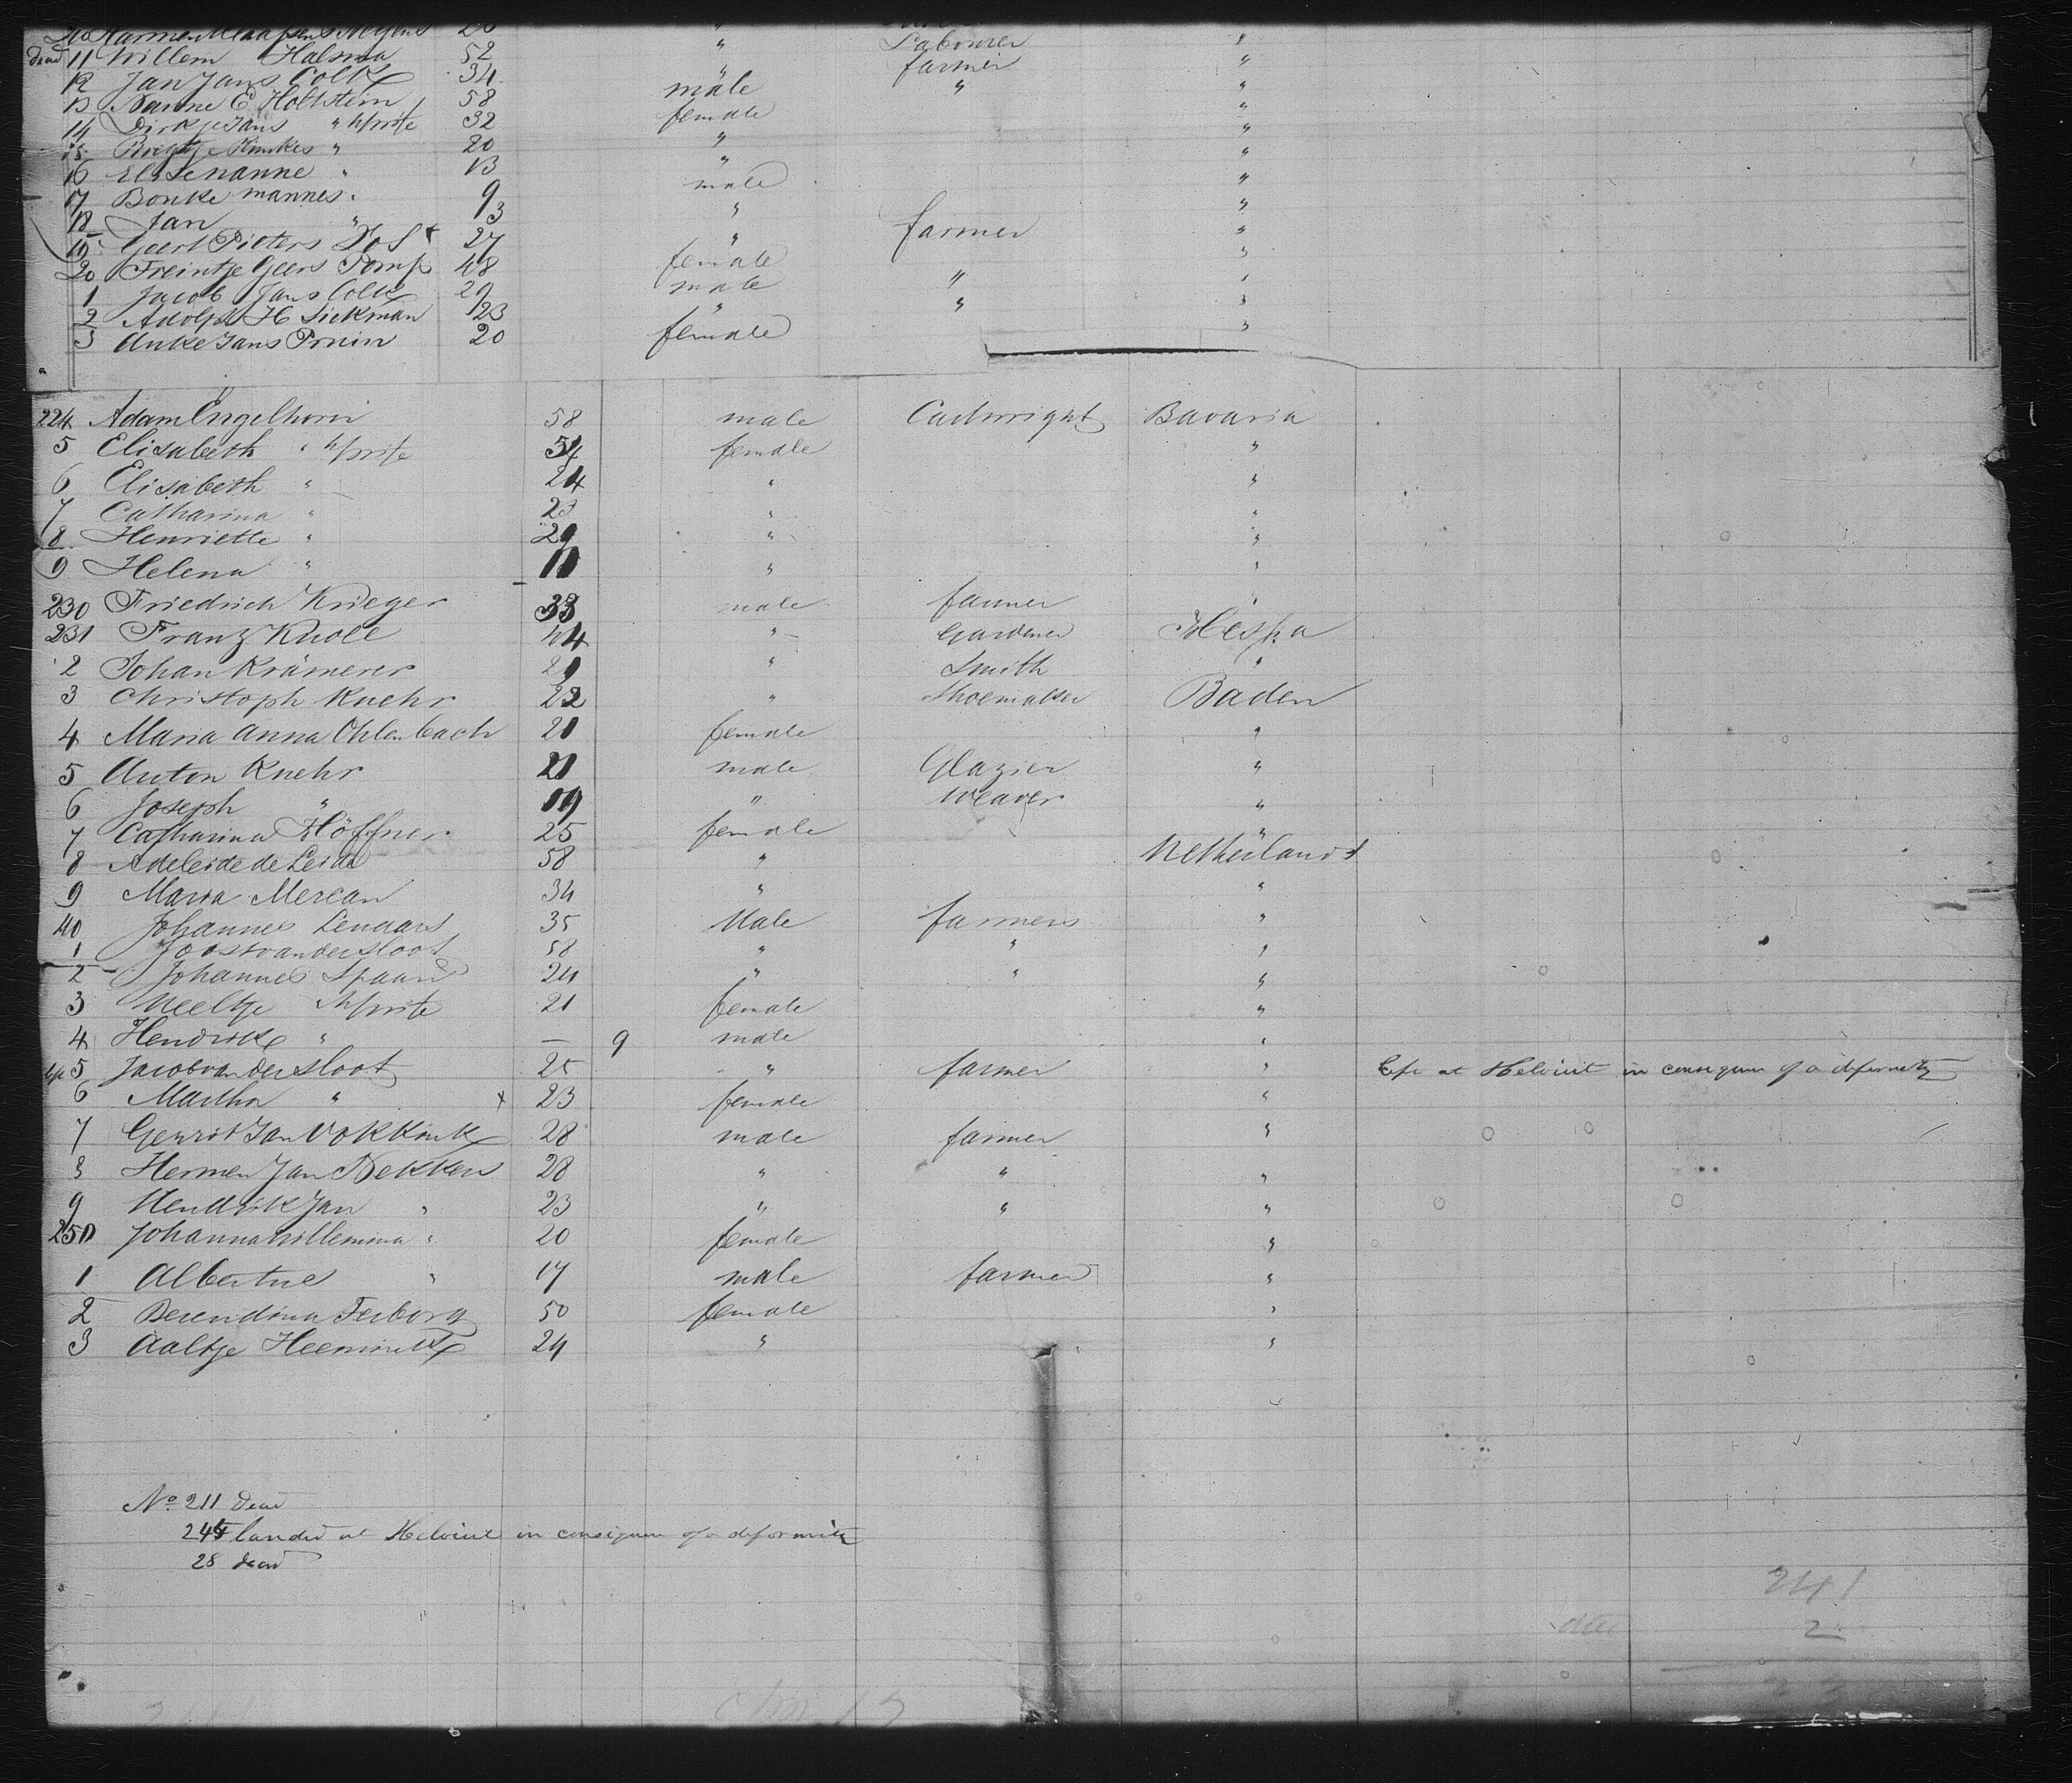 Dead 11 Willem Halsma 52 " Labourer "
12 Jan Jans Colk 34 " farmer "
13 Nanne E Holtstein 58 male " "
14 Dirkje Jans " wife 32 female "
15 " 20 " "
16 Elske nanne " 13 " "
17 Bonke mannes " 9 male "
18 Jan " 3 " "
19 Geert Pieters Dos 27 " farmer "
20 Freintje Geers Pomp 48 female "
1 Jacob Jans Colk 29 male " "
2 Adolph H Siekman 23 " " "
3 Anke Jans Pruin 20 female "
224 Adam Engelhorn 58 male Cartwright Bavaria
5 Elisabeth " wife 54 female "
6 Elisabeth " 24 " "
7 Catharina " 23 " "
8 Henriette " " "
9 Helena " " "
230 Friedrich Krieger 33 male farmer "
231 Franz Knoll 44 " Gardener Hessa
2 Johan Krämerer 21 " Smith "
3 Christoph Knehr 22 " Shoemaker Baden
4 Maria Anna Ohlenbach 21 female "
5 Anton Knehr 21 male Glazier "
6 Joseph " 19 " Weaver "
7 Catharina Höffner 25 female "
8 Adeleide de Leide 58 " Netherlands
9 Maria Mercan 34 " "
40 Johannes Lenaars 35 Male farmers "
1 Joost van der Sloot 58 " " "
2 Johannes Spaan 24 " " "
3 Neeltje " wife 21 female "
4 Hendrik " — 9 male "
5 Jacob van der Sloot 25 " farmer " left at Helvoirt in consequen of a deformity
6 Martha " x 23 female "
7 Gerrit Jan Vokkink 28 male farmer "
8 Hermen Jan Nekkers 28 " " "
9 Hendrik Jan " 23 " " "
250 Johanna Willemina " 20 female "
1 Albertus " 17 male farmer "
2 Berendina Terborg 50 female "
3 Aaltje Heemink 24 " "
No 211 Dead
245 landed at Helvoirt in consequen of a deformity
28 dead
241
2